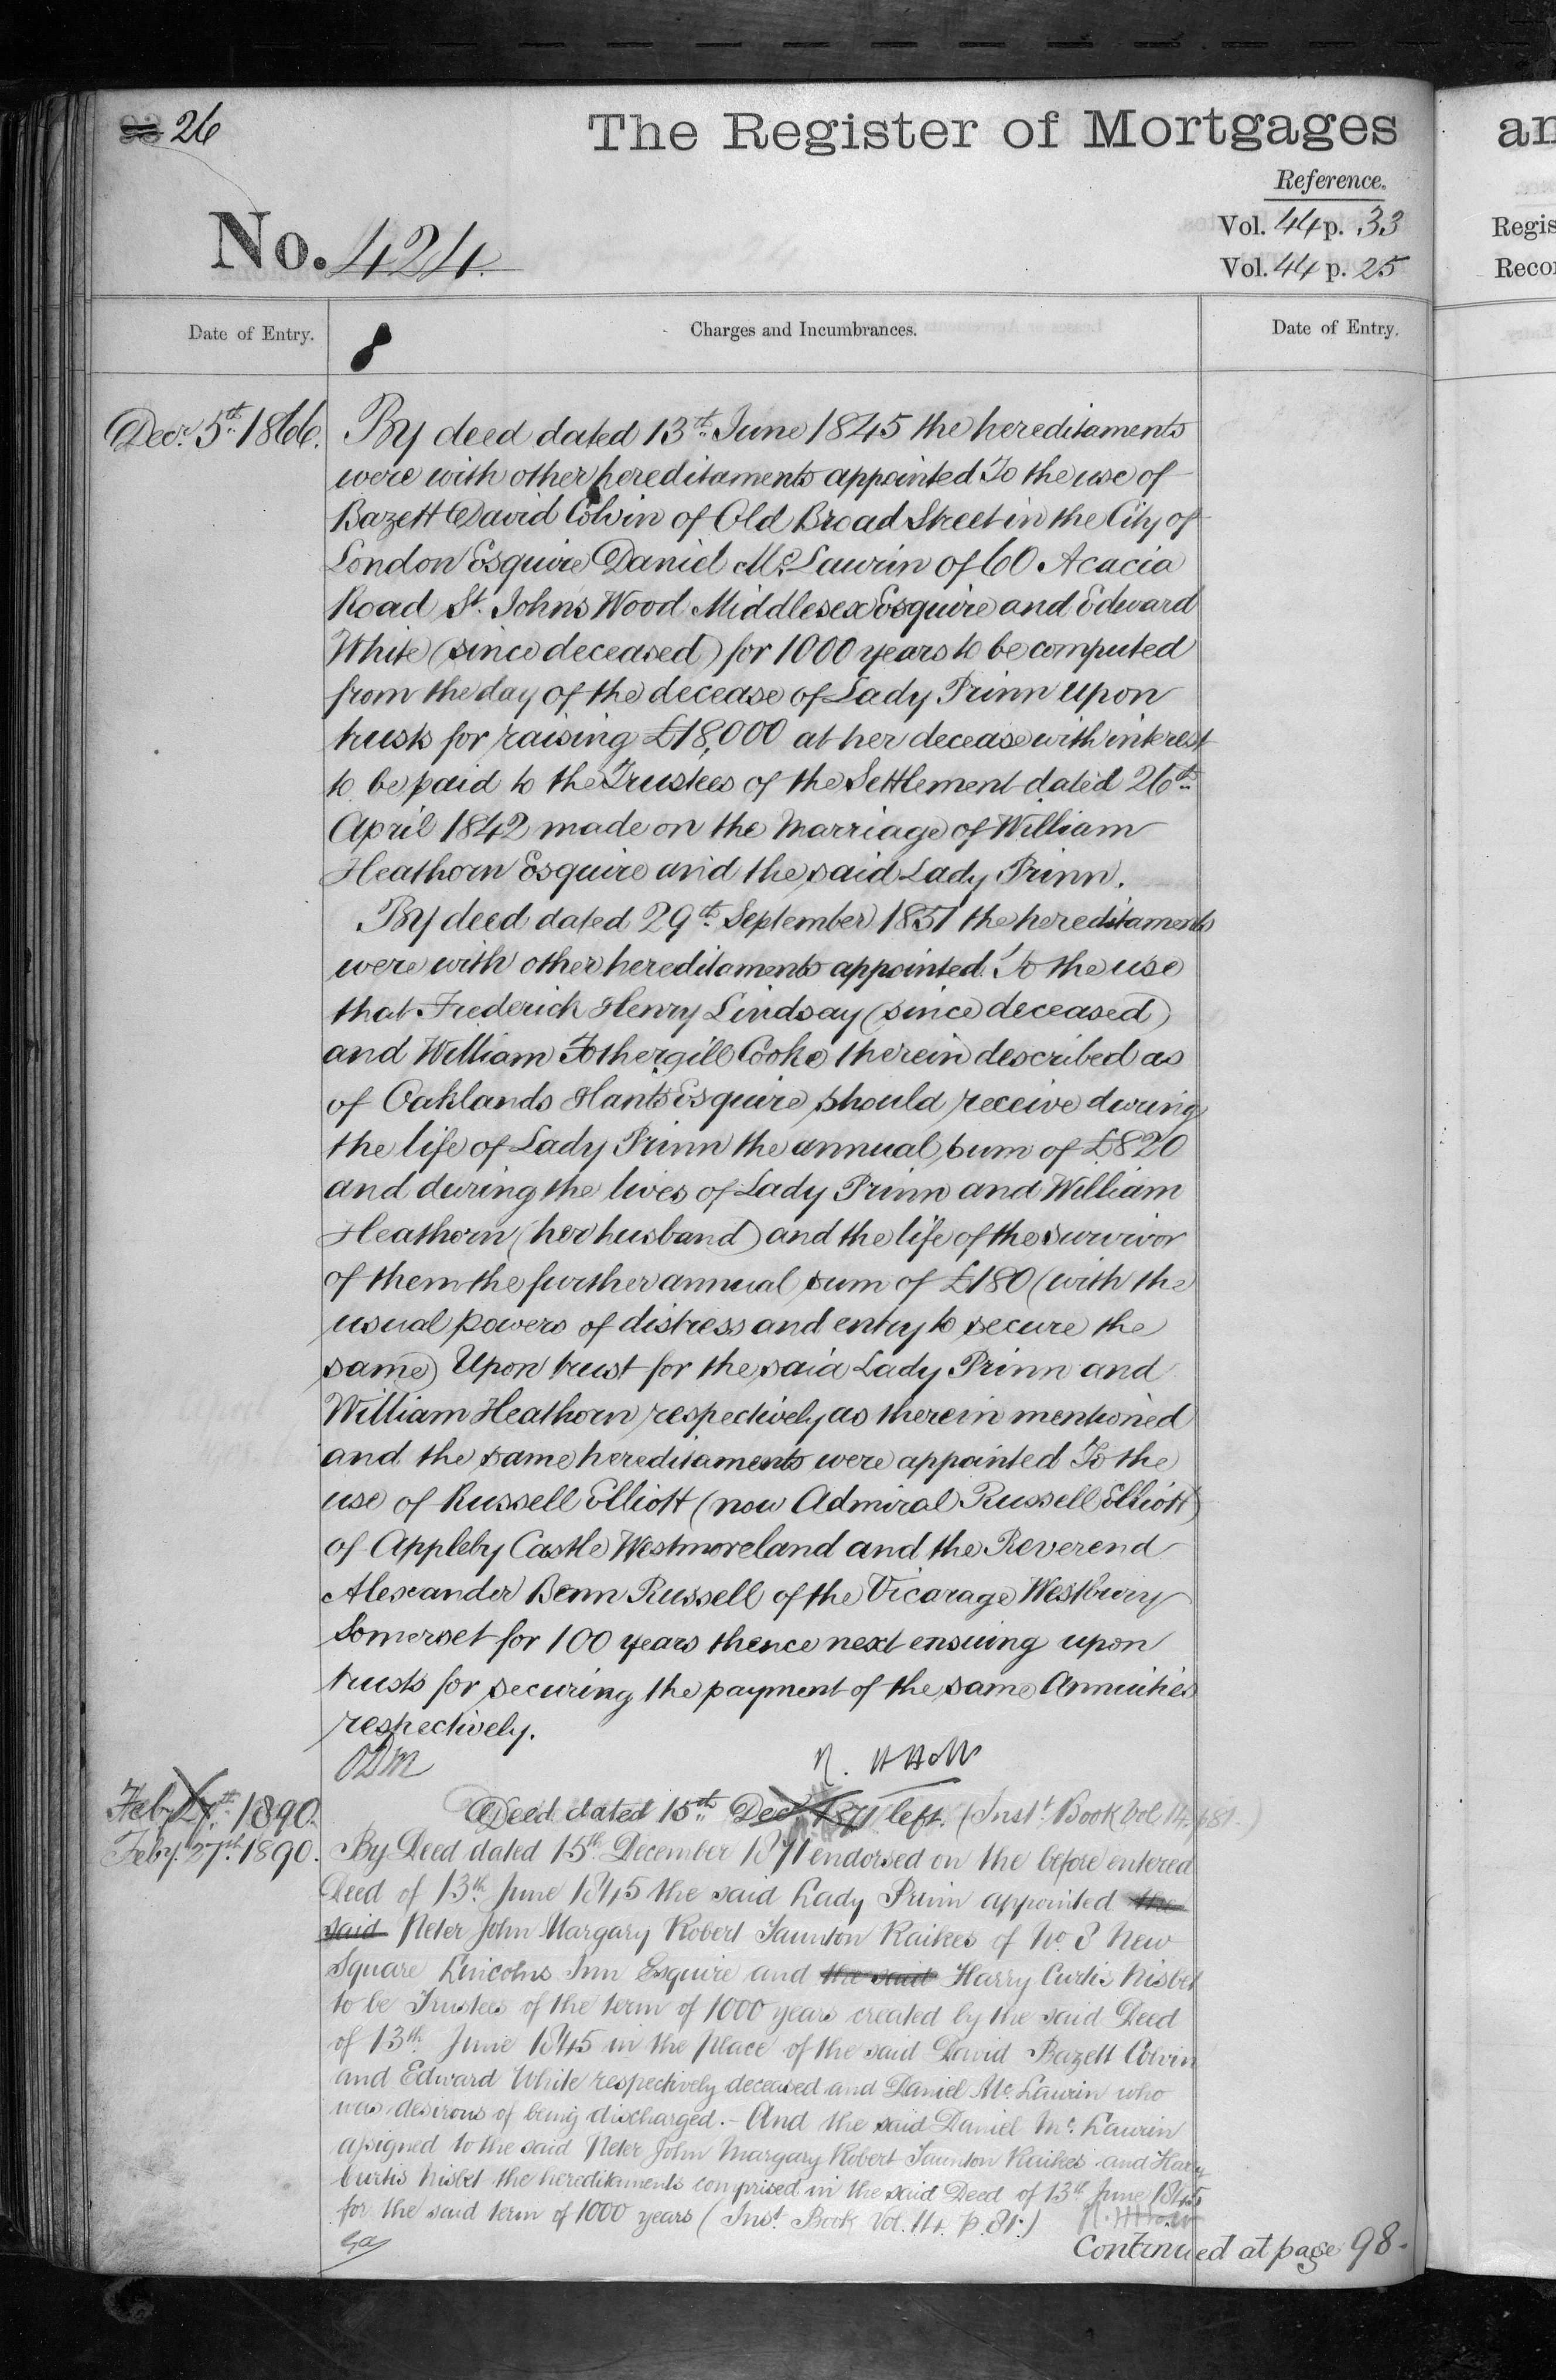 26
The Register of Mortgages
an
Reference.
No. 424.
Vol. 44 p. 33
Regis
Vol. 44 p. 25
Recor
Date of Entry.
8
Charges and Incumbrances.
Date of Entry.
Decr. 5th. 1866.
By deed dated 13th. June 1845 the hereditaments
were with other hereditaments appointed To the use of
Bazett David Colvin of Old Broad Street in the City of
London Esquire Daniel Mc.Laurin of 60 Acacia
Road St. Johns Wood Middlesex Esquire and Edward
White (since deceased) for 1000 years to be computed
from the day of the decease of Lady Prinn upon
trusts for raising £18,000 at her decease with interest
to be paid to the Trustees of the Settlement dated 26th.
April 1842 made on the Marriage of William
Heathorn Esquire and the said Lady Prinn.
By deed dated 29th. September 1851 the hereditaments
were with other hereditaments appointed. To the use
that Frederick Henry Lindsay (since deceased)
and William Fothergill Cooke therein described as
of Oaklands Hants Esquire should receive during
the life of Lady Prinn the annual sum of £820
and during the lives of Lady Prinn and William
Heathorn (her husband) and the life of the survivor
of them the further annual sum of £180 (with the
usual powers of distress and entry to secure the
same) Upon trust for the said Lady Prinn and
William Heathorn respectively as therein mentioned
and the same hereditaments were appointed To the
use of Russell Elliott (now Admiral Russell Elliott)
of Appleby Castle Westmoreland and the Reverend
Alexander Benn Russell of the Vicarage Westbury
Somerset for 100 years thence next ensuing upon
trusts for securing the payment of the same Annuities
respectively.
Feby. 27th. 1890.
Deed dated 15th. Decr. 1871 left. (Inst. Book Vol 14. p81.)
Feby. 27th. 1890.
By Deed dated 15th. December 1871 endorsed on the before entered
Deed of 13th. June 1845 the said Lady Prinn appointed the
said Peter John Margary Robert Taunton Raikes of No. 3 New
Square Lincolns Inn Esquire and the said Harry Curtis Nisbet
to be Trustees of the term of 1000 years created by the said Deed
of 13th. June 1845 in the place of the said David Bazett Colvin
and Edward White respectively deceased and Daniel Mc. Laurin who
was desirous of being discharged. - And the said Daniel Mc. Laurin
assigned to the said Peter John Margary Robert Taunton Raikes and Harry
Curtis Nisbet the hereditaments comprised in the said Deed of 13th. June 1845
for the said term of 1000 years (Inst. Book Vol. 14. p. 81.)
Continued at page 98.